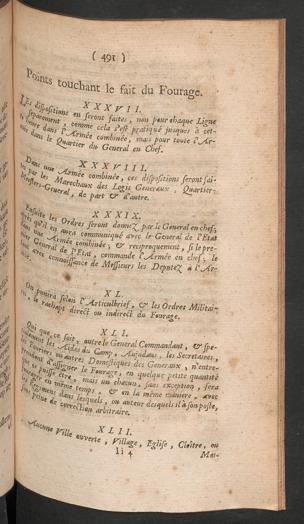 ( 491 )
Points touchant le fait du Fourage.
XXXVII.
Les dispositions en seront faites, non pour chaque Ligne
separement, comme cela s'est pratiqué jusques à cet-
te heure dans l'Armée combinée, mais pour toute l'Ar-
mée dans le Quartier du General en Chef.
XXXVIII.
Dans une Armée combinée, ces dispositions seront fai-
tes par les Marechaux des Logis Generaux, Quartier-
Mestres-General, de part & d'autre.
XXXIX.
Ensuite les Ordres seront donnez par le General en chef,
après qu'il en aura communiqué avec le General de l'Etat
Armée combinée, & reciproquement, si le pre-
General de l'Etat, commande l'Armée en chef; le
avec connoissance de Messieurs les Deputez à l'Ar-
XL.
On punira selon l'Articulbrief, & les Ordres Militai-
res, le rachapt direct ou indirect du Fourage.
XLI.
Qui que ce soit, outre le General Commandant, & spe-
les Aides du Camp, Aujudans, les Secretaires,
ou autres Domestiques des Generaux, n'entre-
prendent d'assigner le Fourage, en quelque petite quantité
que ce puisse être, mais un chacun, sans exception, sera
en même temps, & en la même maniere, avec
dans lesquels, ou auteur desquels il a son poste,
peine de correction arbitraire.
XLII.
Aucune Ville ouverte, Village, Eglise, Cloître, ou
Ii 4
Mai-